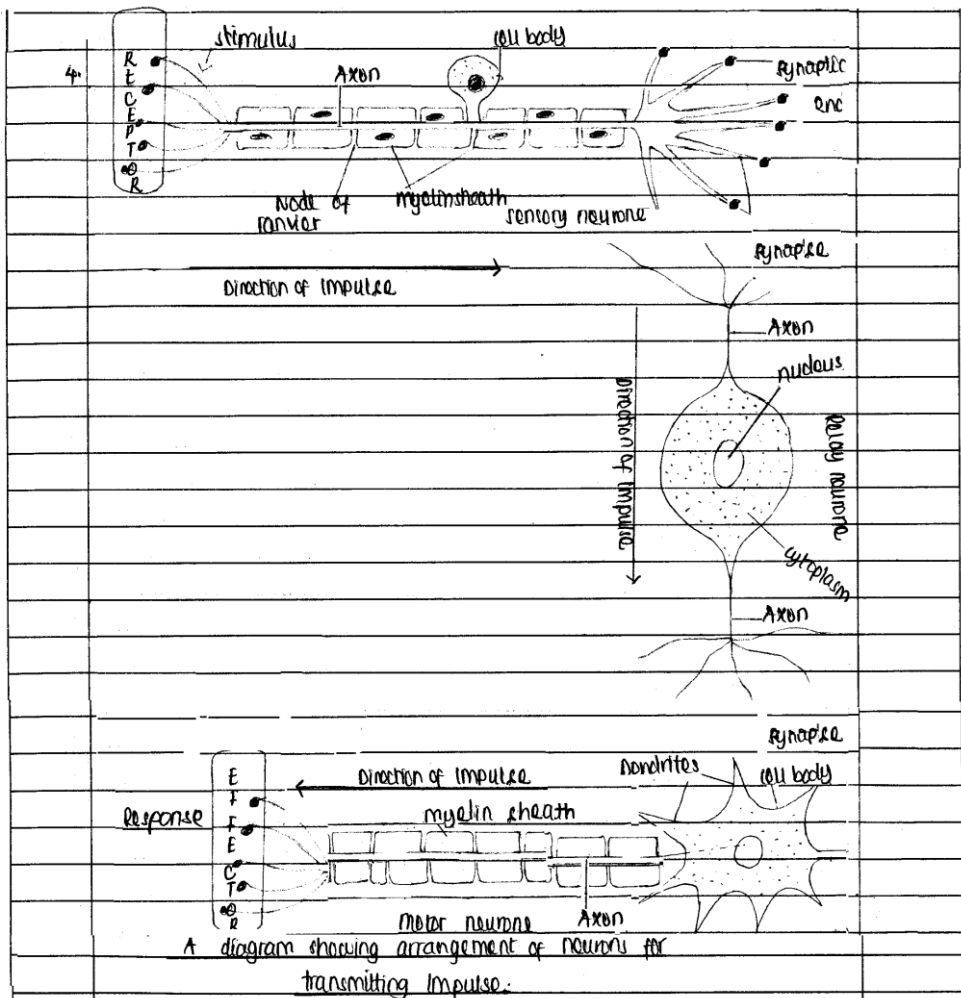 4.
RECEPTOR
stimulus
Axon
cell body
synaptic
end
Node of
ranvier
myelinsheath
sensory neurone
Direction of Impulse
synapse
Axon
nucleus
Direction of Impulse
Relay neurone
cytoplasm
Axon
synapse
EFFECTOR
Response
Direction of Impulse
myelin sheath
Dendrites
cell body
motor neurone
Axon
A diagram showing arrangement of neurons for
transmitting impulse.